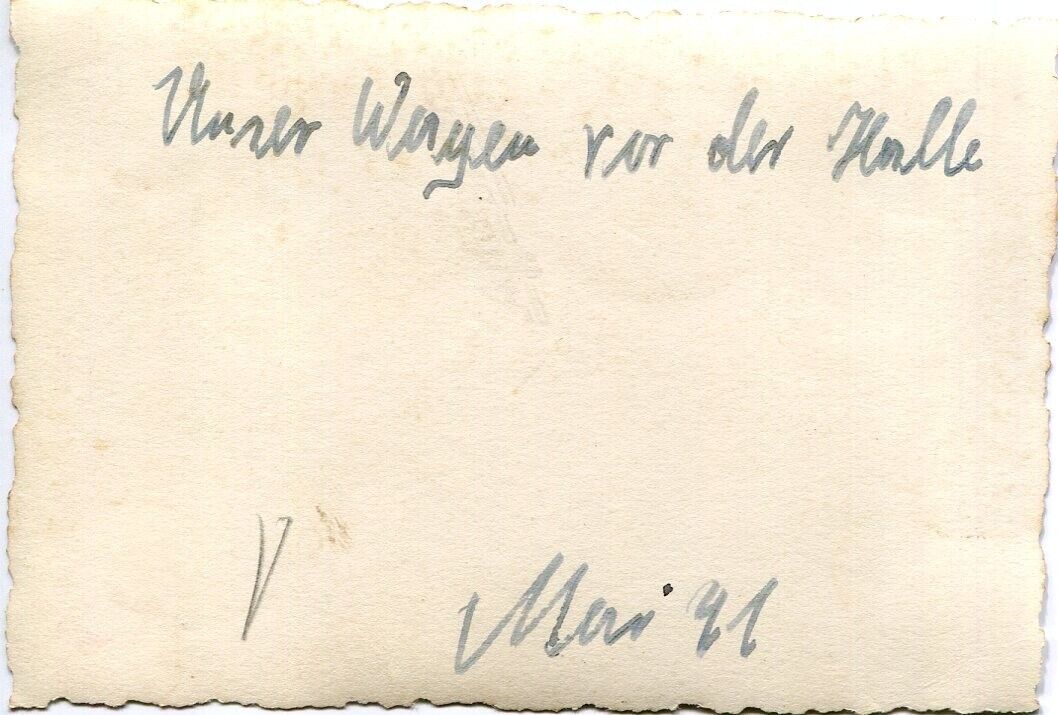 Unser Wagen vor der Halle
Mai 41